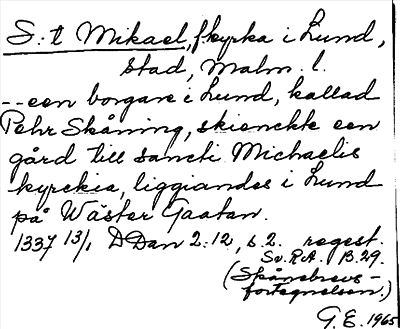 S:t Mikael, f kyrka i Lund,
stad, Malm. l.
--een borgare i Lund, kallad
Pehr Skåning, skienckte een
gård till sancti Michaelis
kyrckia, liggiandes i Lund
på Wäster Gaatan.
1337 13/1 DDan 2:12, s.2. regest.
Sv.R.A. B.29.
(Skånebrevs-
fortegnelsen.)
G.E. 1965